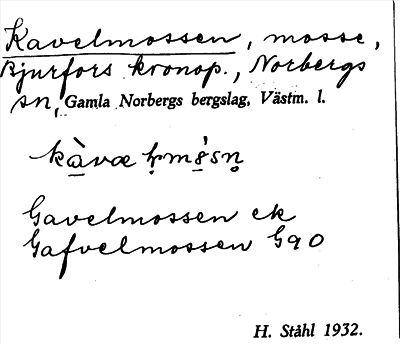 Kavelmossen, mosse,
Bjurfors kronop., Norbergs
sn, Gamla Norbergs bergslag, Västm. l.
Gavelmossen ek
Gafvelmossen GaO
H. Ståhl 1932.